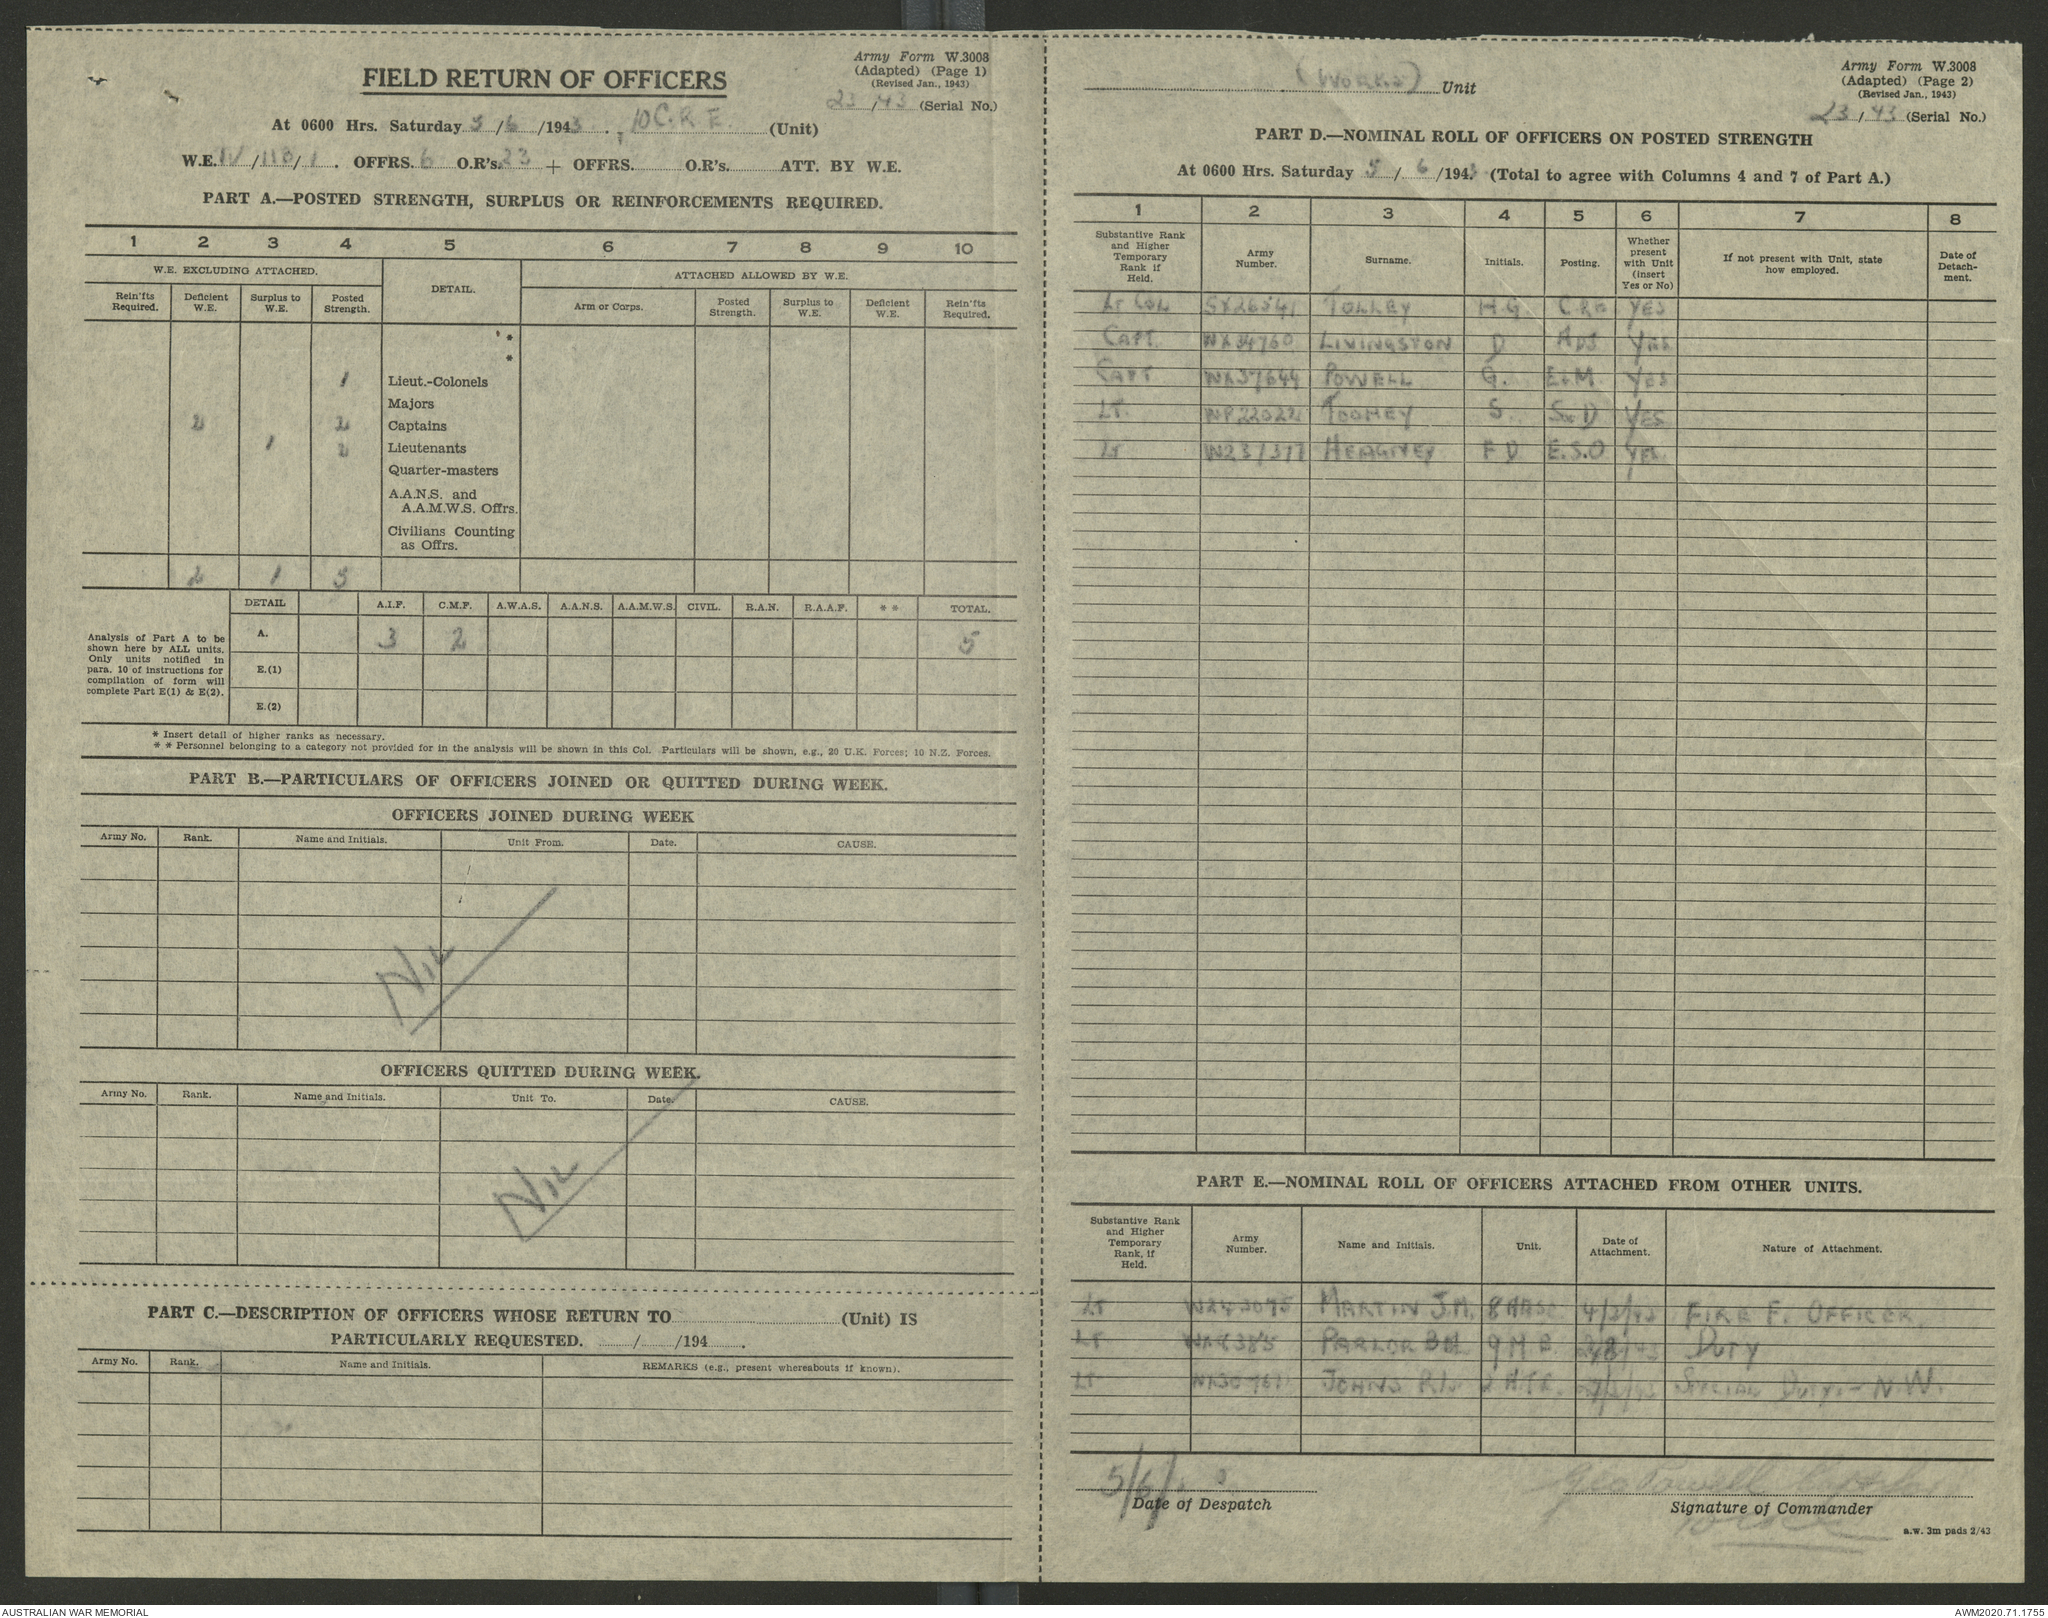 Army Form W.3008
(Adapted) (Page 1)
(Revised Jan., 1943)
FIELD RETURN OF OFFICERS
23/43 (Serial No.)
At 0600 Hrs. Saturday 5/6/1943. 10 C.R.E. (Unit)
W.E. IV/113/1. OFFRS. 6 O.R's. 23 + OFFRS. O.R's. ATT. BY W.E.
PART A.—POSTED STRENGTH, SURPLUS OR REINFORCEMENTS REQUIRED.
1 2 3 4 5 6 7 8 9 10
W.E. EXCLUDING ATTACHED. DETAIL. ATTACHED ALLOWED BY W.E.
Rein'fts Required. Deficient W.E. Surplus to W.E. Posted Strength. Arm or Corps. Posted Strength. Surplus to W.E. Deficient W.E. Rein'fts Required.
*
*
1 Lieut.-Colonels
Majors
2 2 Captains
1 2 Lieutenants
Quarter-masters
A.A.N.S. and
A.A.M.W.S. Offrs.
Civilians Counting
as Offrs.
2 1 5
DETAIL A.I.F. C.M.F. A.W.A.S. A.A.N.S. A.A.M.W.S. CIVIL. R.A.N. R.A.A.F. * * TOTAL.
Analysis of Part A to be
shown here by ALL units.
Only units notified in
para. 10 of instructions for
compilation of form will
complete Part E(1) & E(2).
A. 3 2 5
E.(1)
E.(2)
* Insert detail of higher ranks as necessary.
* * Personnel belonging to a category not provided for in the analysis will be shown in this Col. Particulars will be shown, e.g., 20 U.K. Forces; 10 N.Z. Forces.
PART B.—PARTICULARS OF OFFICERS JOINED OR QUITTED DURING WEEK.
OFFICERS JOINED DURING WEEK
Army No. Rank. Name and Initials. Unit From. Date. CAUSE.
NIL
OFFICERS QUITTED DURING WEEK.
Army No. Rank. Name and Initials. Unit To. Date. CAUSE.
NIL
PART C.—DESCRIPTION OF OFFICERS WHOSE RETURN TO (Unit) IS
PARTICULARLY REQUESTED. / /194 .
Army No. Rank. Name and Initials. REMARKS (e.g., present whereabouts if known).
(WORKS) Unit
Army Form W.3008
(Adapted) (Page 2)
(Revised Jan., 1943)
23/43 (Serial No.)
PART D.—NOMINAL ROLL OF OFFICERS ON POSTED STRENGTH
At 0600 Hrs. Saturday 5/6/1943 (Total to agree with Columns 4 and 7 of Part A.)
1 2 3 4 5 6 7 8
Substantive Rank and Higher Temporary Rank if Held. Army Number. Surname. Initials. Posting. Whether present with Unit (insert Yes or No) If not present with Unit, state how employed. Date of Detach-ment.
LT COL SX26541 TOLLEY H.G CRE YES
CAPT. WX34760 LIVINGSTON D ADJ YES
CAPT WX37644 POWELL G. E&M YES
LT. WP22022 TOOHEY S. S&D YES
LT W231377 HEAGNEY F D E.S.O YES
PART E.—NOMINAL ROLL OF OFFICERS ATTACHED FROM OTHER UNITS.
Substantive Rank and Higher Temporary Rank, if Held. Army Number. Name and Initials. Unit. Date of Attachment. Nature of Attachment.
LT MARTIN J.M. FIRE F. OFFICER.
LT DUTY
LT JOHNS SPECIAL DUTY.— N.W.
5/6/
Date of Despatch
Geo Powell
Signature of Commander
a.w. 3m pads 2/43
AUSTRALIAN WAR MEMORIAL
AWM2020.71.1755